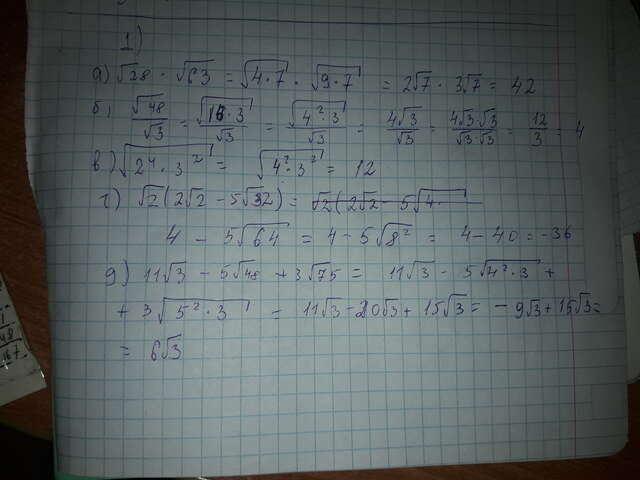 1)
а) √28 · √63 = √4·7 · √9·7 = 2√7 · 3√7 = 42
б) √48/√3 = √16·3/√3 = √4²·3/√3 = 4√3/√3 = 4√3·√3/√3·√3 = 12/3 = 4
в) √2⁴·3² = √4²·3² = 12
г) √2(2√2 - 5√32) =
4 - 5√64 = 4 - 5√8² = 4 - 40 = -36
д) 11√3 - 5√48 + 3√75 = 11√3 - 5√4²·3 +
+ 3√5²·3 = 11√3 - 20√3 + 15√3 = -9√3 + 15√3 =
= 6√3